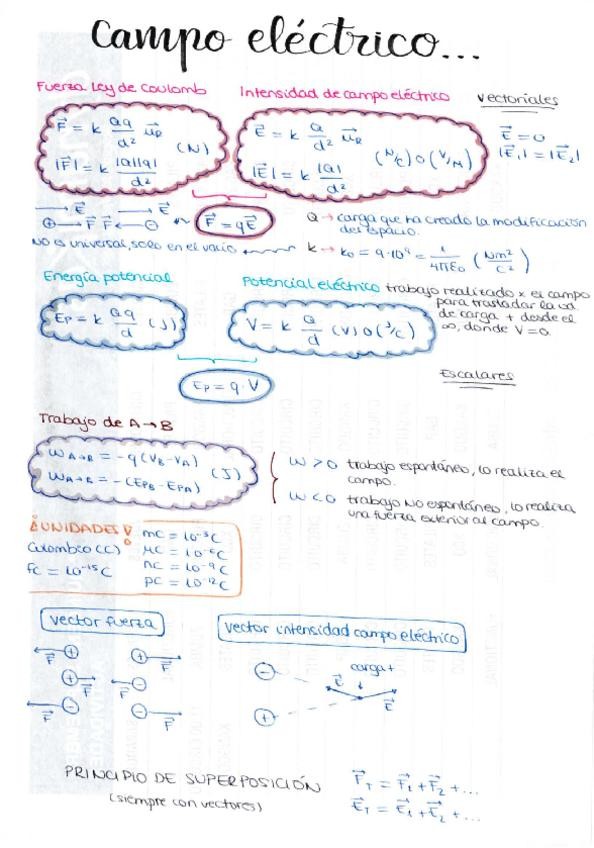 Campo eléctrico...
Fuerza Ley de Coulomb
Intensidad de campo eléctrico
Vectoriales
F⃗ = k Qq/d² u⃗R
|F⃗| = k |Q||q|/d² (N)
E⃗ = k Q/d² u⃗R
|E⃗| = k |Q|/d² (N/C) o (V/M)
E⃗ = 0
|E⃗1| = |E⃗2|
E⃗ E⃗
⊕→ F⃗ F⃗ ←⊖
F⃗ = qE⃗
Q → carga que ha creado la modificación
del espacio.
No es universal, solo en el vacío
k → k0 = 9·10⁹ = 1/4πε0 (Nm²/C²)
Energía potencial
Potencial eléctrico trabajo realizado x el campo
para trasladar la ud
de carga + desde el
∞, donde V=0.
Ep = k Qq/d (J)
V = k Q/d (V) o (J/C)
Ep = q·V
Escalares
Trabajo de A→B
WA→B = -q(VB-VA)
WA→B = -(EPB-EPA)
(J)
W > 0 trabajo espontáneo, lo realiza el
campo.
W < 0 trabajo No espontáneo, lo realiza
una fuerza exterior al campo.
¿UNIDADES?
Culombio (C)
fC = 10⁻¹⁵C
mC = 10⁻³C
μC = 10⁻⁶C
nC = 10⁻⁹C
pC = 10⁻¹²C
vector fuerza
vector intensidad campo eléctrico
F⃗ + + F⃗
+ F⃗ F⃗ -
F⃗ - - F⃗
- carga+
E⃗
+ E⃗
PRINCIPIO DE SUPERPOSICIÓN
(siempre con vectores)
F⃗T = F⃗1 + F⃗2 + ...
E⃗T = E⃗1 + E⃗2 + ...